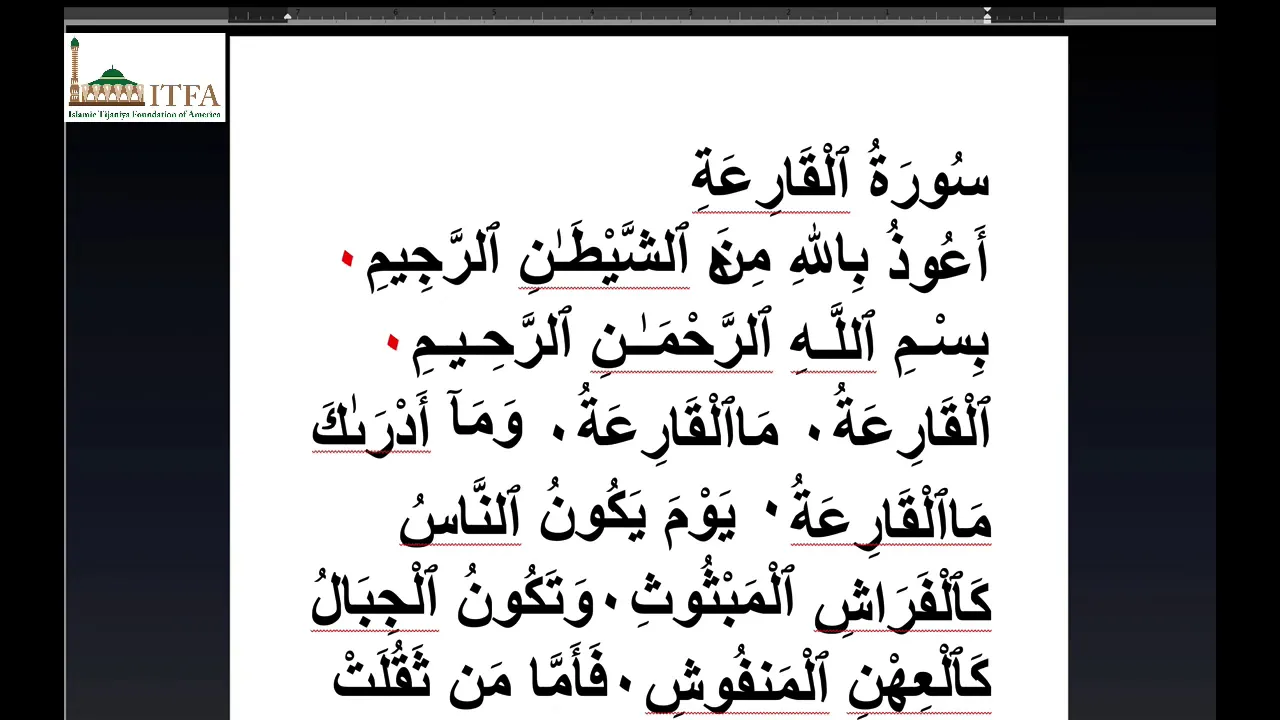 7 6 5 4 3 2 1
ITFA
Islamic Tijaniya Foundation of America
سُورَةُ ٱلْقَارِعَةِ
أَعُوذُ بِاللهِ مِنَ ٱلشَّيْطَـٰنِ ٱلرَّجِيمِ ٠
بِسْـمِ ٱللَّـهِ ٱلرَّحْمَـٰـنِ ٱلرَّحِـيـمِ ٠
ٱلْقَارِعَةُ ٠ مَاٱلْقَارِعَةُ ٠ وَمَآ أَدْرَىٰكَ
مَاٱلْقَارِعَةُ ٠ يَوْمَ يَكُونُ ٱلنَّاسُ
كَٱلْفَرَاشِ ٱلْمَبْثُوثِ ٠ وَتَكُونُ ٱلْجِبَالُ
كَٱلْعِهْنِ ٱلْمَنفُوشِ ٠ فَأَمَّا مَن ثَقُلَتْ